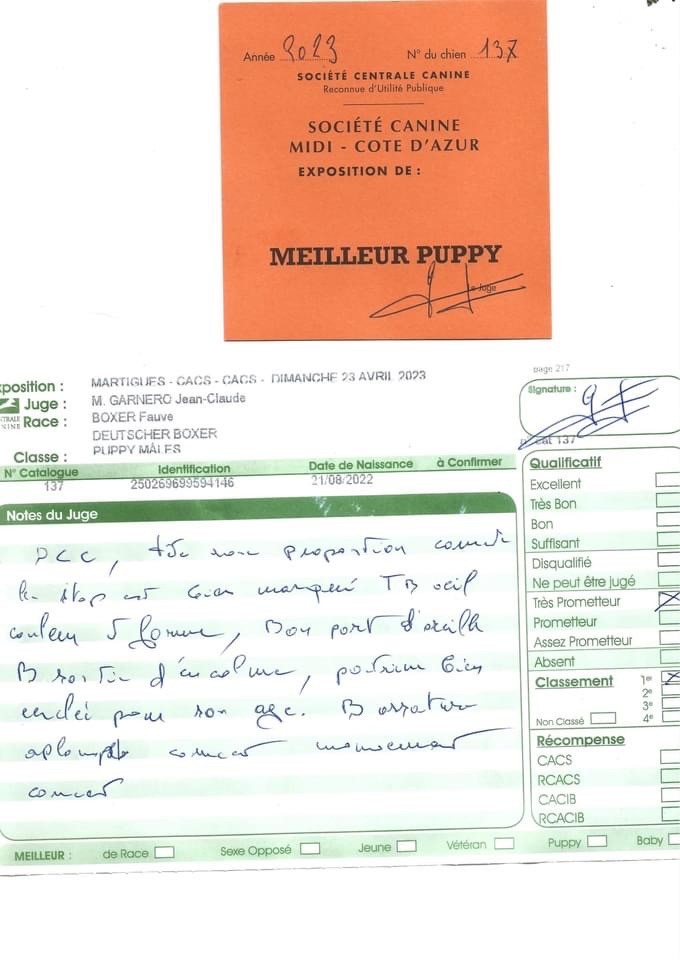 Année 2023 N° du chien 137
SOCIÉTÉ CENTRALE CANINE
Reconnue d'Utilité Publique
SOCIÉTÉ CANINE
MIDI - COTE D'AZUR
EXPOSITION DE :
MEILLEUR PUPPY
Le Juge
page 217
xposition : MARTIGUES - CACS - CACS - DIMANCHE 23 AVRIL 2023
Juge : M. GARNERO Jean-Claude
Race : BOXER Fauve
DEUTSCHER BOXER
Classe : PUPPY MÂLES
Signature :
cat 137
N° Catalogue Identification Date de Naissance à Confirmer
137 250269699594146 21/08/2022
Notes du Juge
DCC, tête proportion correcte
le stop est bien marqué TB oeil
couleur forme, Bon port d'oreille
B sortie d'encolure, poitrine bien
pour son age. B ossature
aplombs correct mouvement
correct
Qualificatif
Excellent
Très Bon
Bon
Suffisant
Disqualifié
Ne peut être jugé
Très Prometteur
Prometteur
Assez Prometteur
Absent
Classement 1er
2e
3e
Non Classé 4e
Récompense
CACS
RCACS
CACIB
RCACIB
MEILLEUR : de Race Sexe Opposé Jeune Vétéran Puppy Baby